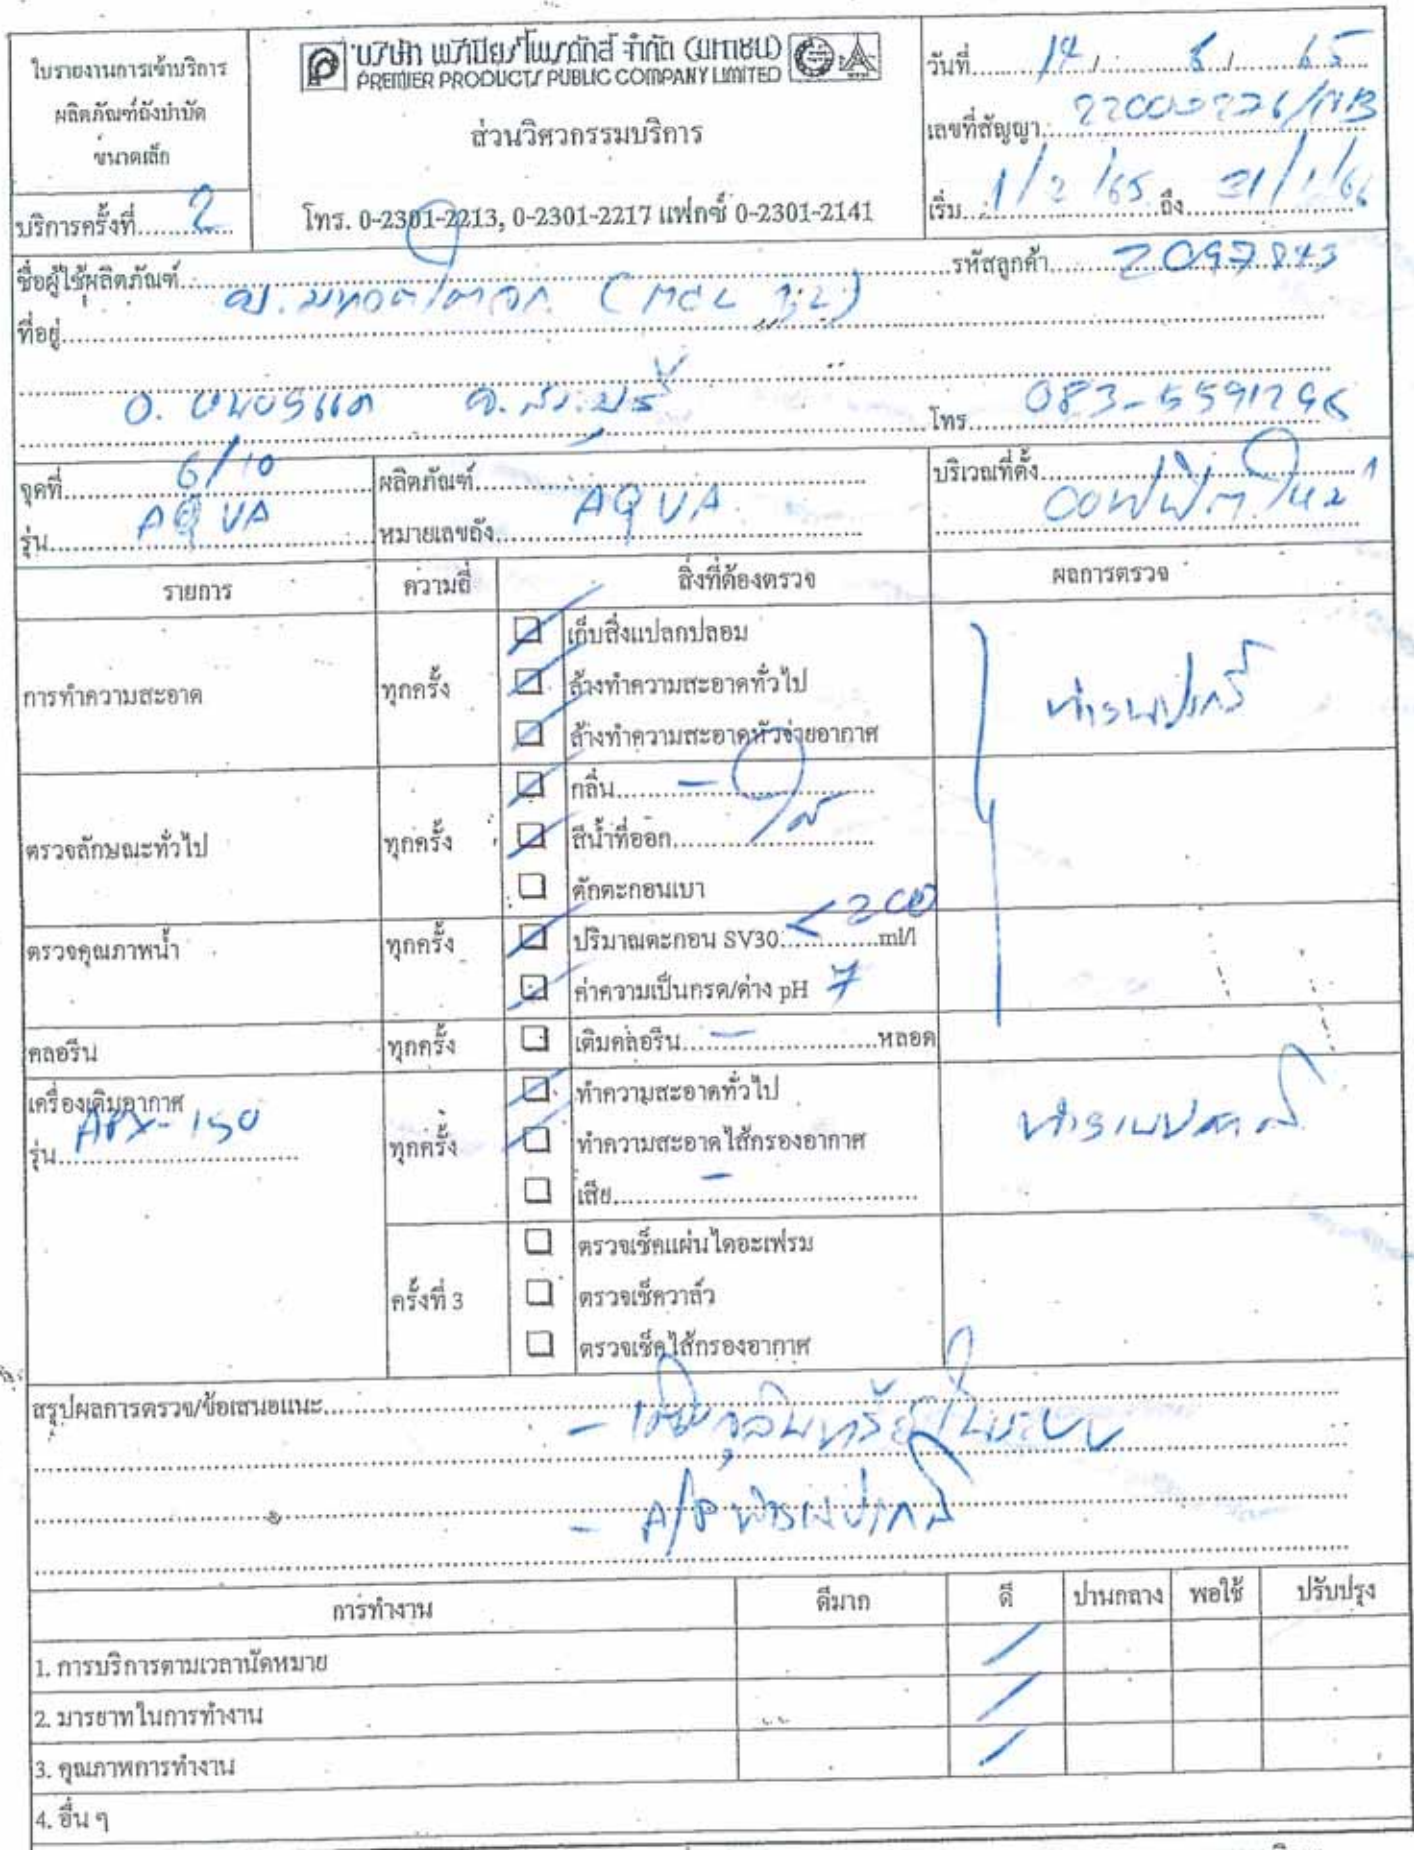 ใบรายงานการเข้าบริการ
ผลิตภัณฑ์ถังบำบัด
ขนาดเล็ก
บริการครั้งที่ 2
บริษัท พรีเมียร์ โพรดักส์ จำกัด (มหาชน)
PREMIER PRODUCTS PUBLIC COMPANY LIMITED
ส่วนวิศวกรรมบริการ
โทร. 0-2301-2213, 0-2301-2217 แฟกซ์ 0-2301-2141
วันที่ 14 / 6 / 65
เลขที่สัญญา 22000226/NB
เริ่ม 1/2/65 ถึง 31/1/66
ชื่อผู้ใช้ผลิตภัณฑ์ รหัสลูกค้า 2097843
ที่อยู่
อ. หนองแค จ. สระบุรี โทร 083-5591296
จุดที่ 6/10 ผลิตภัณฑ์ AQUA บริเวณที่ตั้ง
รุ่น AQUA หมายเลขถัง ออฟฟิตใหม่
รายการ ความถี่ สิ่งที่ต้องตรวจ ผลการตรวจ
การทำความสะอาด ทุกครั้ง
เก็บสิ่งแปลกปลอม
ล้างทำความสะอาดทั่วไป
ล้างทำความสะอาดหัวจ่ายอากาศ
ทำงานปกติ
ตรวจลักษณะทั่วไป ทุกครั้ง
กลิ่น -
สีน้ำที่ออก ใส
ดักตะกอนเบา
ตรวจคุณภาพน้ำ ทุกครั้ง
ปริมาณตะกอน SV30 <200 ml/l
ค่าความเป็นกรด/ด่าง pH 7
คลอรีน ทุกครั้ง เติมคลอรีน - หลอด
เครื่องเติมอากาศ
รุ่น APX-150 ทุกครั้ง
ทำความสะอาดทั่วไป
ทำความสะอาดไส้กรองอากาศ
เสีย -
ทำงานปกติ
ครั้งที่ 3
ตรวจเช็คแผ่นไดอะเฟรม
ตรวจเช็ควาล์ว
ตรวจเช็คไส้กรองอากาศ
สรุปผลการตรวจ/ข้อเสนอแนะ
- เติมจุลินทรีย์ในระบบ
- A/P ทำงานปกติ
การทำงาน ดีมาก ดี ปานกลาง พอใช้ ปรับปรุง
1. การบริการตามเวลานัดหมาย
2. มารยาทในการทำงาน
3. คุณภาพการทำงาน
4. อื่น ๆ